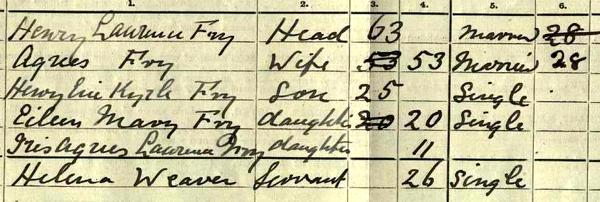 1. 2. 3. 4. 5. 6.
Henry Laurence Fry Head 63 Married 28
Agnes Fry Wife 53 53 Married 28
Kyrle Fry Son 25 Single
Eileen Mary Fry daughter 20 20 Single
Iris Agnes Laurence Fry daughter 11
Helena Weaver Servant 26 Single